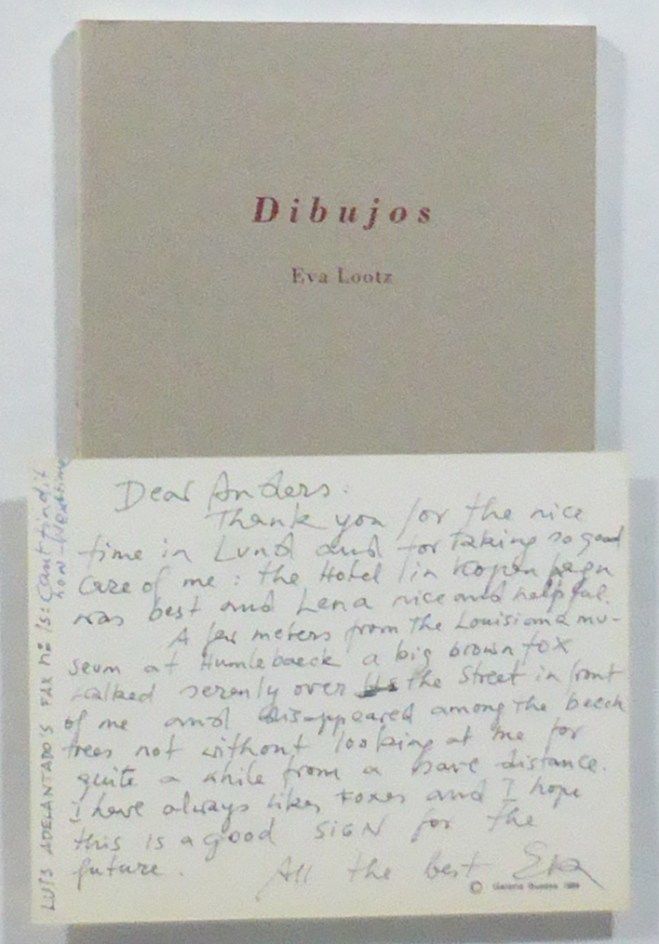 Dibujos
Eva Lootz
Dear Anders:
Thank you for the nice
time in Lund and for taking so good
care of me: the Hotel in Kopenhagn
was best and Lena nice and helpful.
A few meters from the Louisiana mu-
seum at Humlebaeck a big brown fox
walked serenly over the street in front
of me and disappeared among the beech
trees not without looking at me for
quite a while from a save distance.
I have always likes foxes and I hope
this is a good SIGN for the
future.
All the best Eva
© Galería
LUIS ADELANTADO'S FAX Nº IS: Cant find it
now - Next time